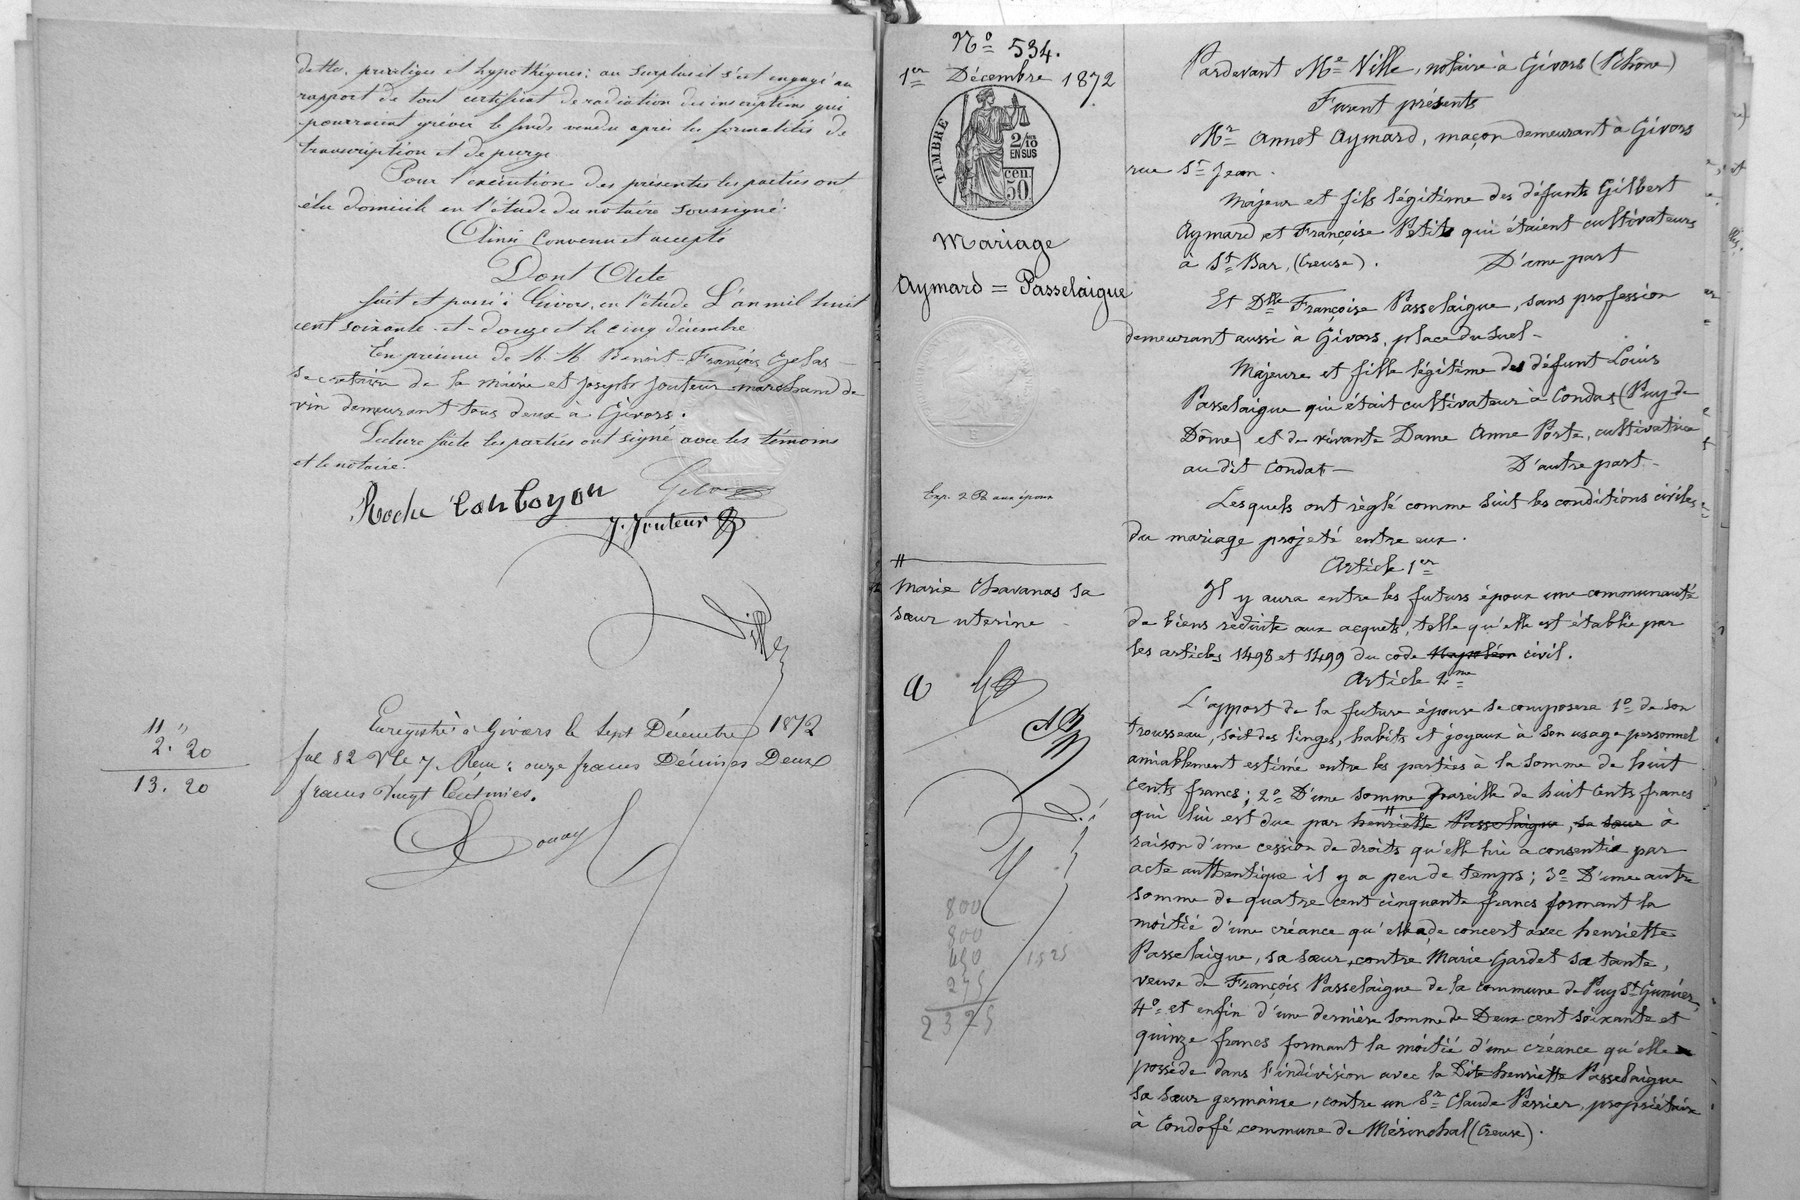 dette, privilèges et hypothèques; au surplus il s'est engagé au
rapport de tout certificat de radiation des inscriptions qui
pourraient grever le fonds vendu après les formalités de
transcription et de purge
Pour l'exécution des présentes les parties ont
élu domicile en l'étude du notaire soussigné.
Ainsi convenu et accepté
Dont Acte
fait et passé à Givors, en l'étude L'an mil huit
cent soixante-et-douze et le cinq décembre
En présence de M. M. Benoit-François Gelas
secrétaire de la mairie et joseph Jouteur marchand de
vin demeurant tous deux à Givors.
Lecture faite les parties ont signé avec les témoins
et le notaire.
Roche
Gelas
J. Jouteur
Ville
11 "
2. 20
13. 20
Enregistré à Givors le sept Décembre 1872
fol 82 Vo Ce 7 Reçu: onze francs Décimes Deux
francs Vingt Centimes.
No 534.
1er Décembre 1872
TIMBRE
2/10
EN SUS
50 cen.
Mariage
Aymard = Passelaigue
Exp. 2 R aux époux
#
Marie Chavanas sa
sœur utérine
800
800
450
275
2325
1525
Pardevant Me Ville, notaire à Givors (Rhône)
Furent présents
Mr Annet Aymard, maçon demeurant à Givors
rue St Jean.
Majeur et fils légitime des défunts Gilbert
Aymard et Françoise Petit qui étaient cultivateurs
à St Bar, (Creuse). D'une part
Et Dlle Françoise Passelaigue, sans profession
demeurant aussi à Givors, place du Suel-
Majeure et fille légitime de défunt Louis
Passelaigue qui était cultivateur à Condat (Puy de
Dôme) et de vivante Dame Anne Porte, cultivatrice
au dit Condat- D'autre part-
Lesquels ont règlé comme suit les conditions civiles
du mariage projeté entre eux.
Article 1er
Il y aura entre les futurs époux une communauté
de biens réduite aux acquets, telle qu'elle est établie par
les articles 1498 et 1499 du code Napoléon civil.
Article 2me
L'apport de la future épouse se composera 1o de son
trousseau, soit des linges, habits et joyaux à son usage personnel
amiablement estimé entre les parties à la somme de huit
cents francs; 2o D'une somme pareille de huit cents francs
qui lui est due par henriette Passelaigue, sa sœur # à
raison d'une cession de droits qu'elle lui a consentie par
acte authentique il y a peu de temps; 3o D'une autre
somme de quatre cent cinquante francs formant la
moitié d'une créance qu'elle a de concert avec henriette
Passelaigue, sa sœur, contre Marie Gardet sa tante,
veuve de François Passelaigue de la commune de Puy St Gunier,
4o et enfin d'une dernière somme de Deux cent soixante et
quinze francs formant la moitié d'une créance qu'elle
possède dans l'indivision avec la Dite henriette Passelaigue
sa sœur germaine, contre un Sr Claude Perrier, propriétaire
à Condofé commune de Mérinchal (Creuse).